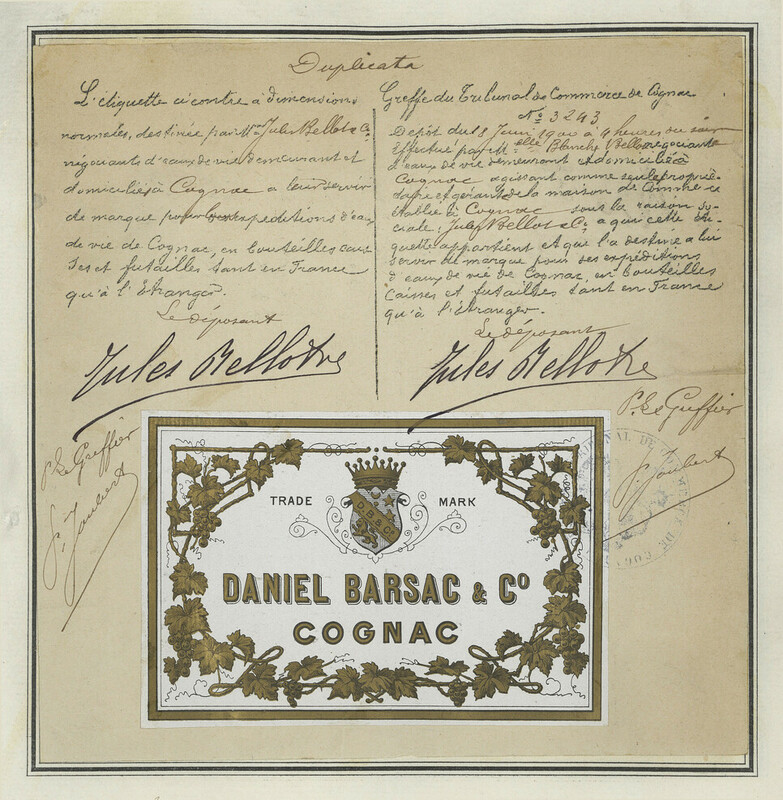 Duplicata
L'étiquette ci contre à dimensions
normales, destinée par M.rs Jules Bellot & Co
négociants d'eaux de vie demeurant et
domiciliés à Cognac a leur servir
de marque pour expéditions d'eaux
de vie de Cognac, en bouteilles cais
ses et futailles tant en France
qu'à l'étranger.
Le déposant
Jules Bellot & Co
P. Le Greffier
P. Joubert
Greffe du Tribunal de Commerce de Cognac
No 3243
Dépôt du 18 Juin 1900 à 4 heures du soir
Effectué par Melle Blanche Bellot négociante
d'eaux de vie demeurant et domiciliée à
Cognac agissant comme seule proprié-
taire et gérant de la maison de Commerce
établie à Cognac sous la raison So-
ciale, Jules Bellot & Co a qui cette éti-
quette appartient et que l'a destine a lui
servir de marque pour ses expéditions
d'eaux de vie de Cognac, en bouteilles
Caisses et futailles tant en France
qu'à l'étranger.
Le déposant
Jules Bellot & Co
P. Le Greffier
P. Joubert
TRADE MARK
D.B. & Co
DANIEL BARSAC & Co
COGNAC